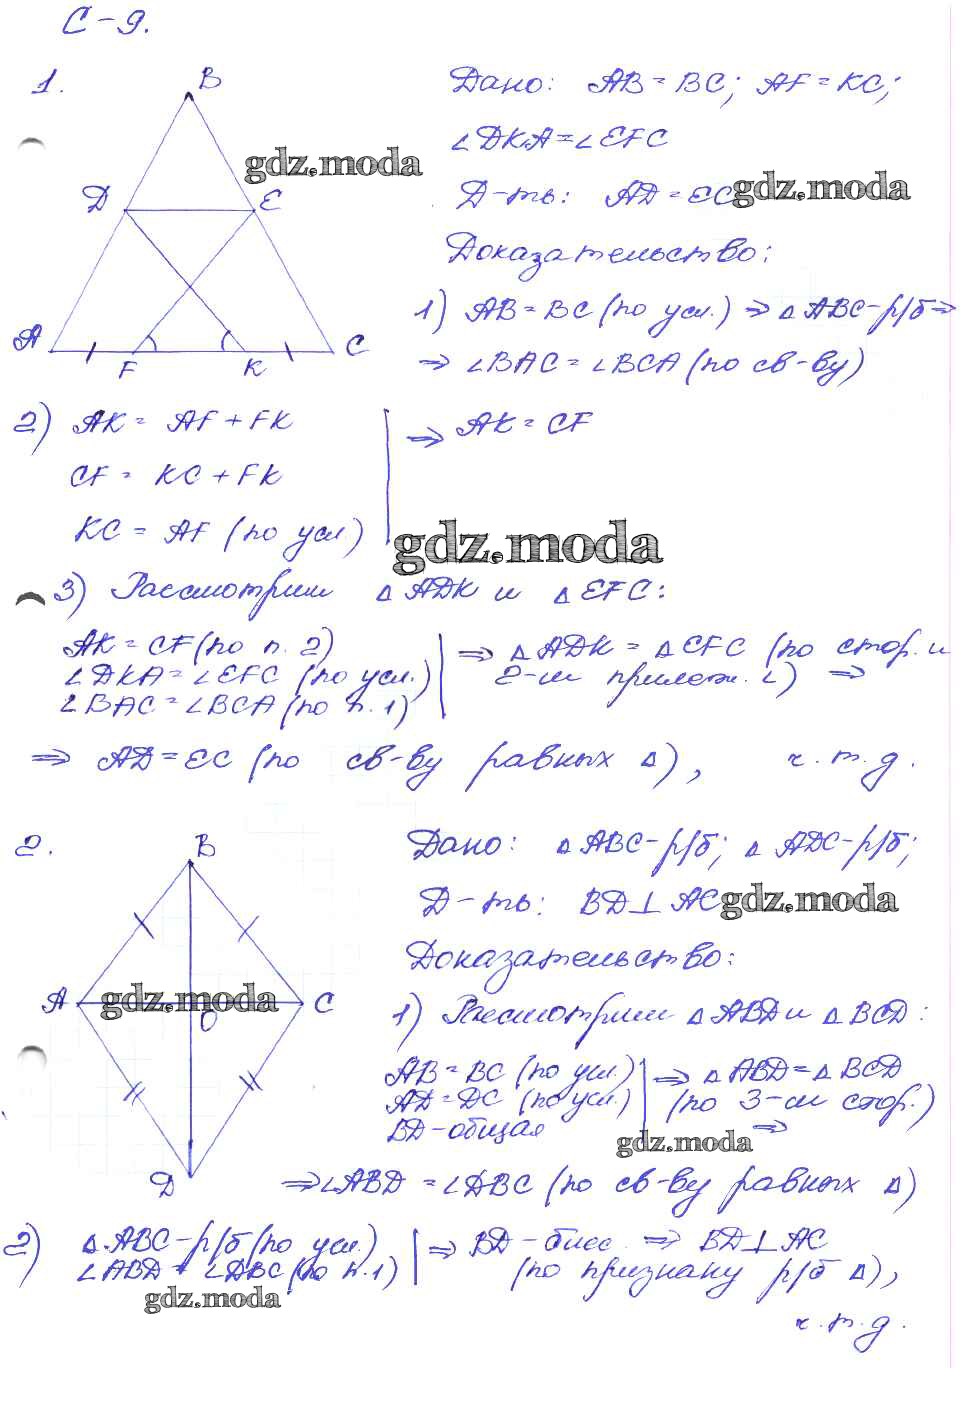 С-9.
1.
B
D
E
A
F
K
C
gdz.moda
Дано: AB = BC; AF = KC;
∠DKA = ∠EFC
Д-ть: AD = EC
gdz.moda
Доказательство:
1) AB = BC (по усл.) ⇒ △ABC-р/б ⇒
⇒ ∠BAC = ∠BCA (по св-ву)
2) AK = AF + FK
CF = KC + FK
KC = AF (по усл)
⇒ AK = CF
gdz.moda
3) Рассмотрим △ADK и △EFC:
AK = CF (по п. 2)
∠DKA = ∠EFC (по усл.)
∠BAC = ∠BCA (по п. 1)
⇒ △ADK = △EFC (по стор. и
2-м прилеж. ∠) ⇒
⇒ AD = EC (по св-ву равных △), ч.т.д.
2.
B
A
C
O
D
gdz.moda
Дано: △ABC-р/б; △ADC-р/б;
Д-ть: BD⊥AC
gdz.moda
Доказательство:
1) Рассмотрим △ABD и △BCD:
AB = BC (по усл.)
AD = DC (по усл.)
BD-общая
⇒ △ABD = △BCD
(по 3-м стор.)
⇒
gdz.moda
⇒ ∠ABD = ∠DBC (по св-ву равных △)
2) △ABC-р/б (по усл.)
∠ABD = ∠DBC (по п. 1)
⇒ BD-бисс. ⇒ BD⊥AC
(по признаку р/б △),
ч.т.д.
gdz.moda